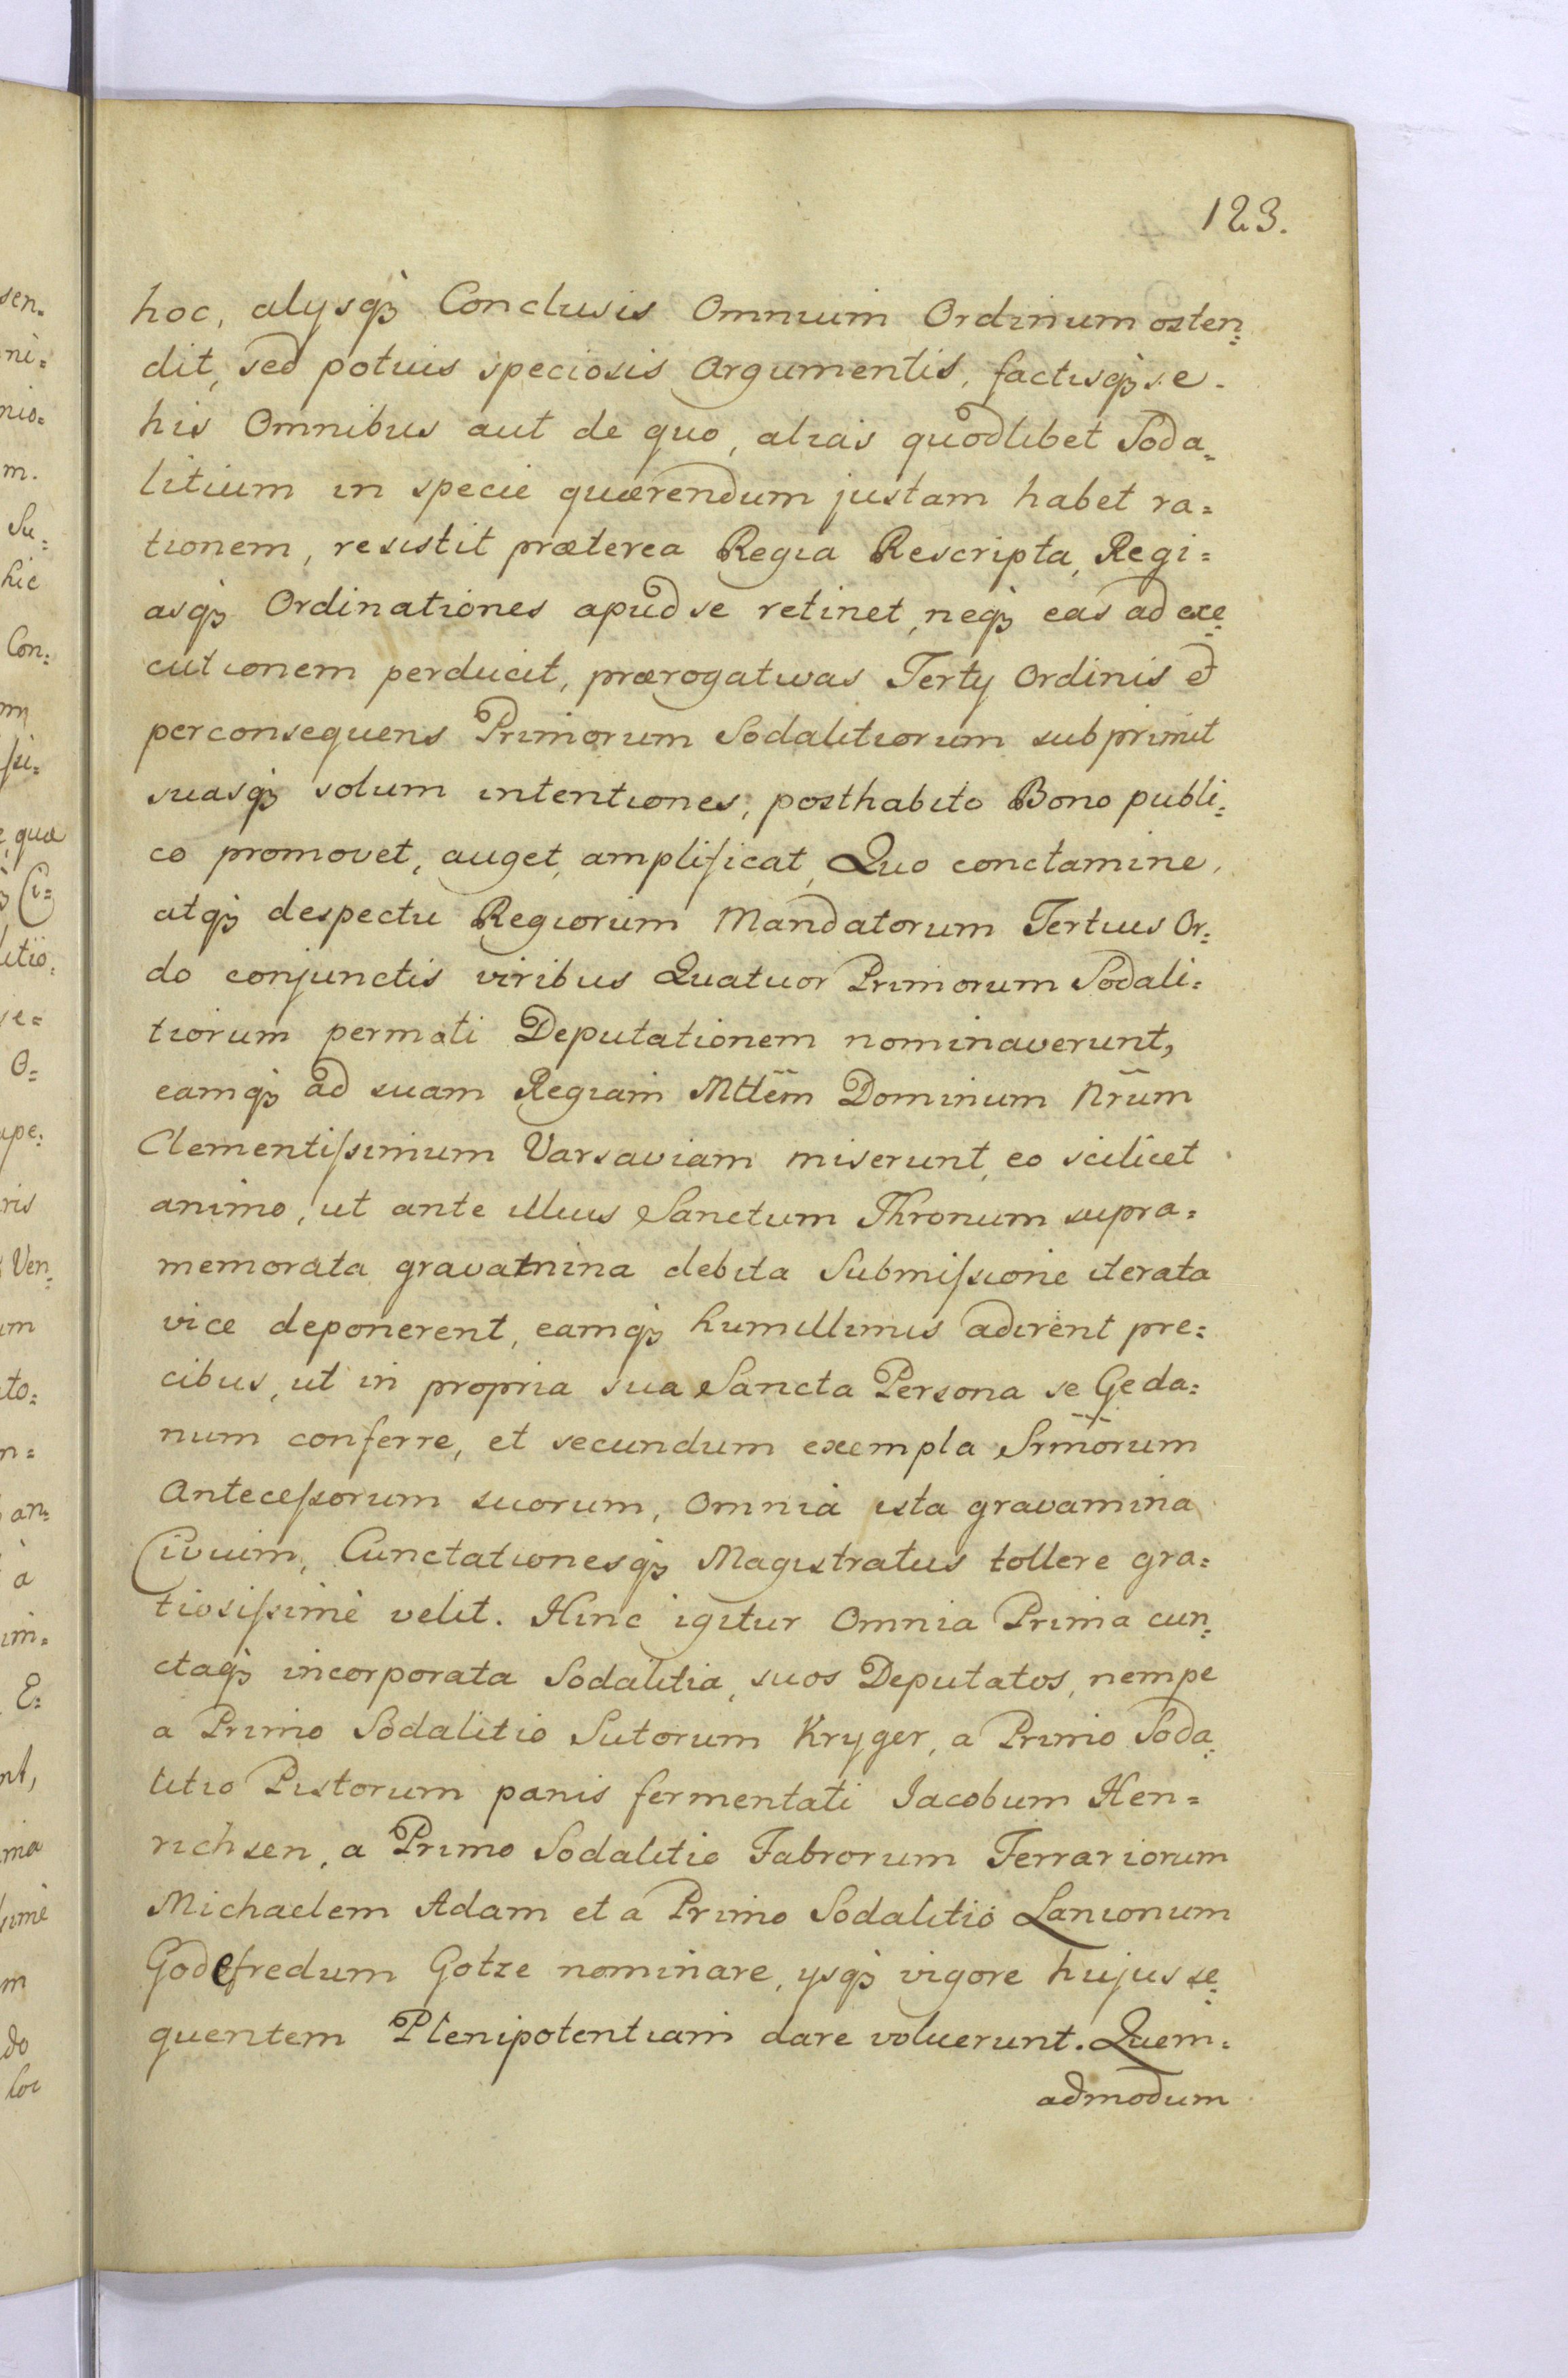 123.
hoc, alysq̃ Conclusis Omnium Ordinum osten=
dit, sed potuis speciosis Argumentis, factisq̃ se
his Omnibus aut de quo, alias quodlibet Soda=
litium in specie quærendum justam habet ra=
tionem, resistit præterea Regia Rescripta, Regi=
asq̃ Ordinationes apud se retinet, neq̃ eas ad exe=
cutionem perducit, prærogativas Terty Ordinis et
perconsequens Primorum Sodalitiorum subprimit
suasq̃ solum intentiones, posthabito Bono publi=
co promovet, auget, amplificat, Quo conctamine,
atq̃ despectu Regiorum Mandatorum Tertius Or=
do conjunctis viribus Quatuor Primorum Sodali=
tiorum permoti Deputationem nominaverunt,
eamq̃ ad suam Regiam Mttẽm Dominum Nrũm
Clementissimum Varsaviam miserunt, eo scilicet
animo, ut ante illius Sanctum Thronum supra=
memorata gravamina debita Submissione iterata
vice deponerent, eamq̃ humillimis adirent pre=
cibus, ut in propria sua Sancta Persona se Geda=
num conferre, et secundum exempla Srm̃orum
Antecessorum suorum, Omnia ista gravamina
Civium, Cunctationesq̃ Magistratus tollere gra=
tiosissimè velit. Hinc igitur Omnia Prima cun=
ctaq̃ incorporata Sodalitia, suos Deputatos, nempe
a Primo Sodalitio Sutorum Kryger, a Primo Soda=
litio Pistorum panis fermentati Jacobum Hen=
richsen, a Primo Sodalitio Fabrorum Ferrariorum
Michaelem Adam et a Primo Sodalitio Lanionum
Godefredum Gotze nominare, ysq̃ vigore hujus se=
quentem Plenipotentiam dare voluerunt. Quem=
admodum